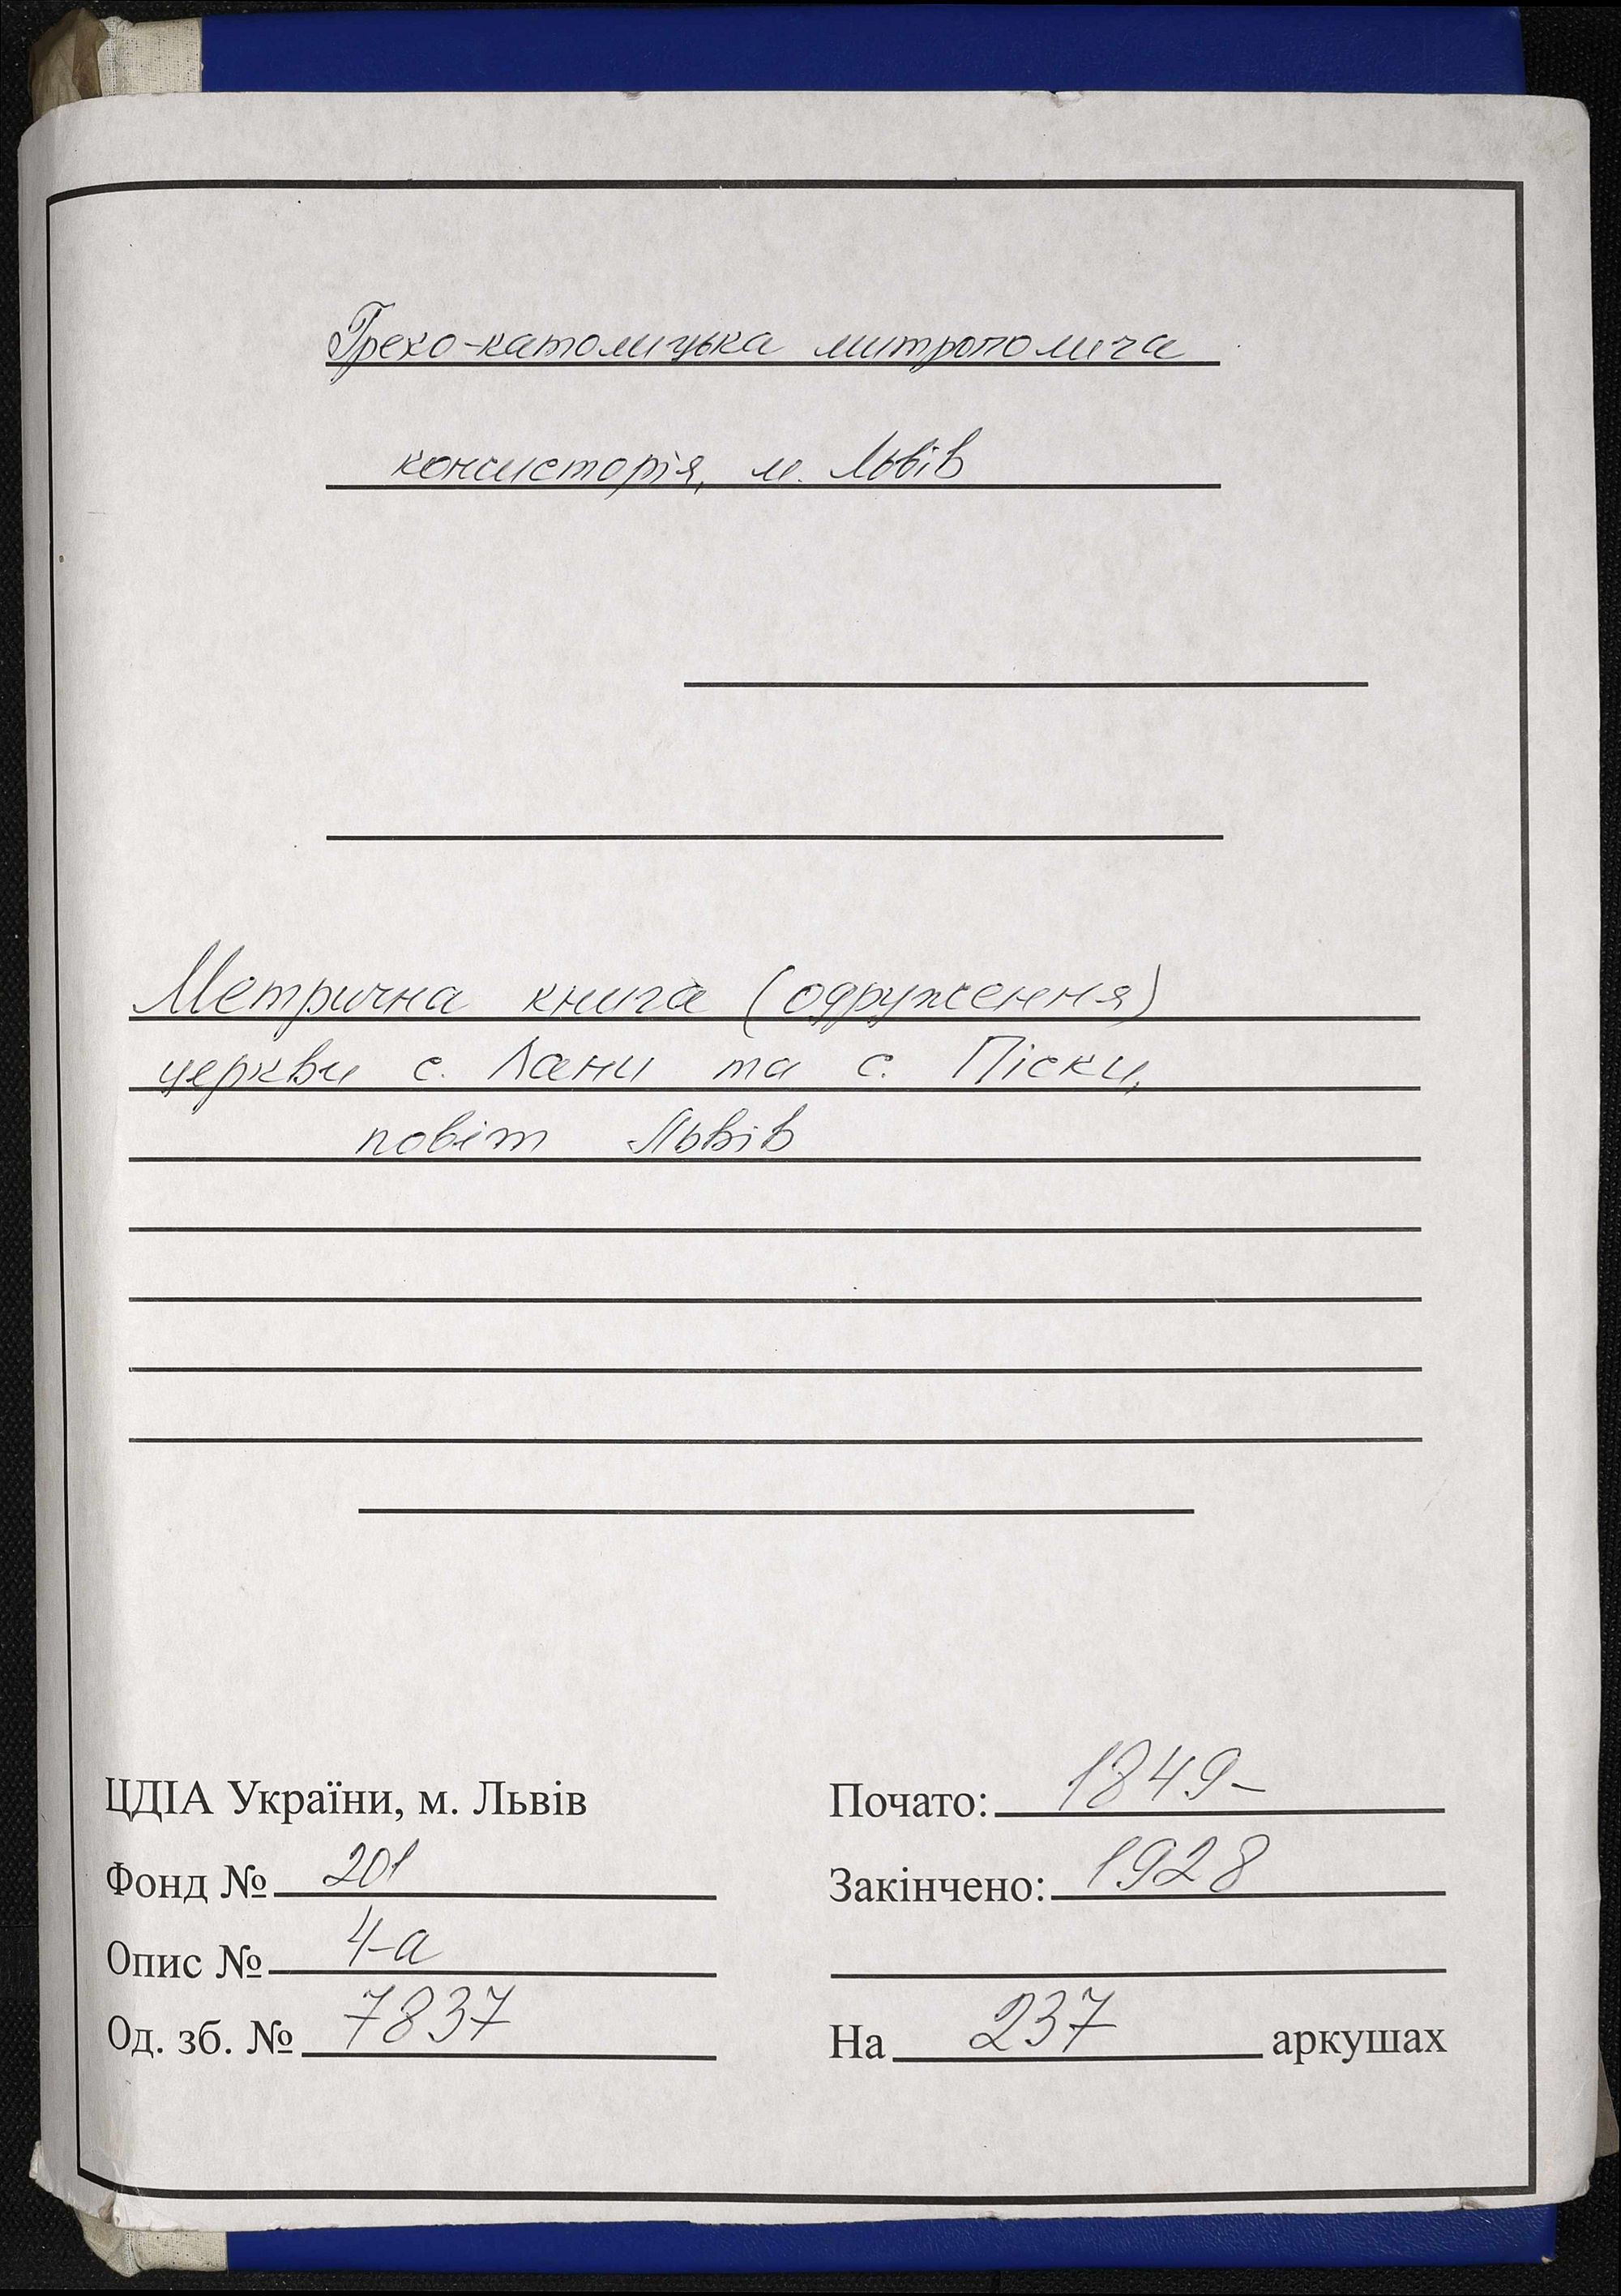 Греко-католицька митрополича
консисторія, м. Львів
Метрична книга (одруження)
церкви с. Лани та с. Піски,
повіт Львів
ЦДІА України, м. Львів
Почато: 1849-
Фонд № 201
Закінчено: 1928
Опис № 4-а
Од. зб. № 7837
На 237 аркушах